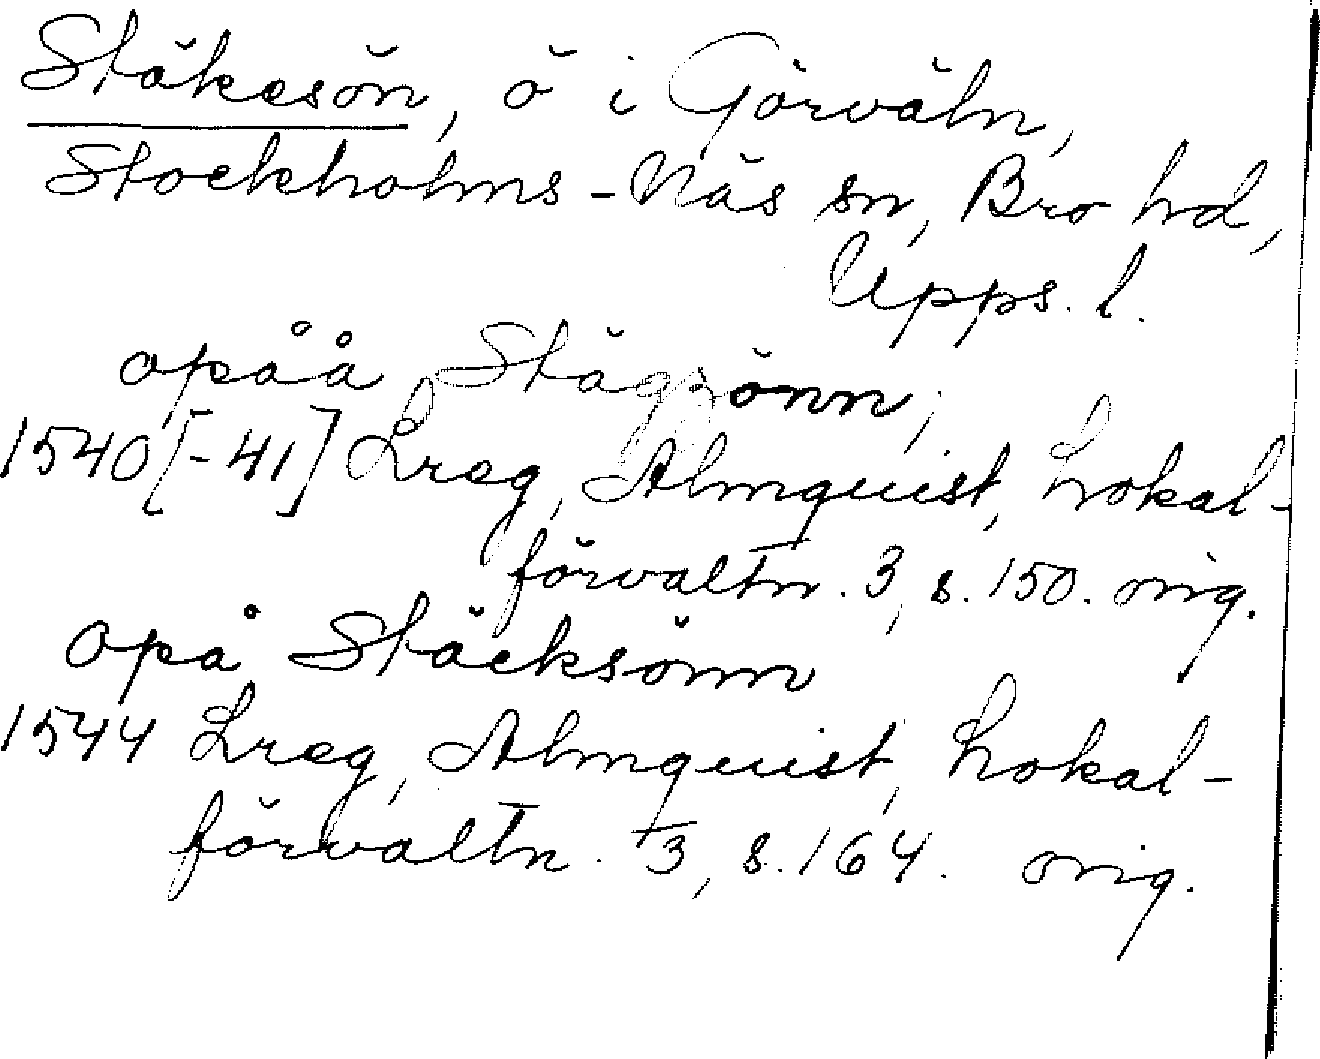 Stäkesön, ö i Görväln,
Stockholms-Näs sn, Bro hd,
Upps. l.
opåå Stägzönn,
1540[-41] Lreg, Almquist, Lokal-
förvaltn. 3, s. 150. orig.
opå Stäcksönn
1544 Lreg, Almquist, Lokal-
förvaltn. 3, s. 164. orig.